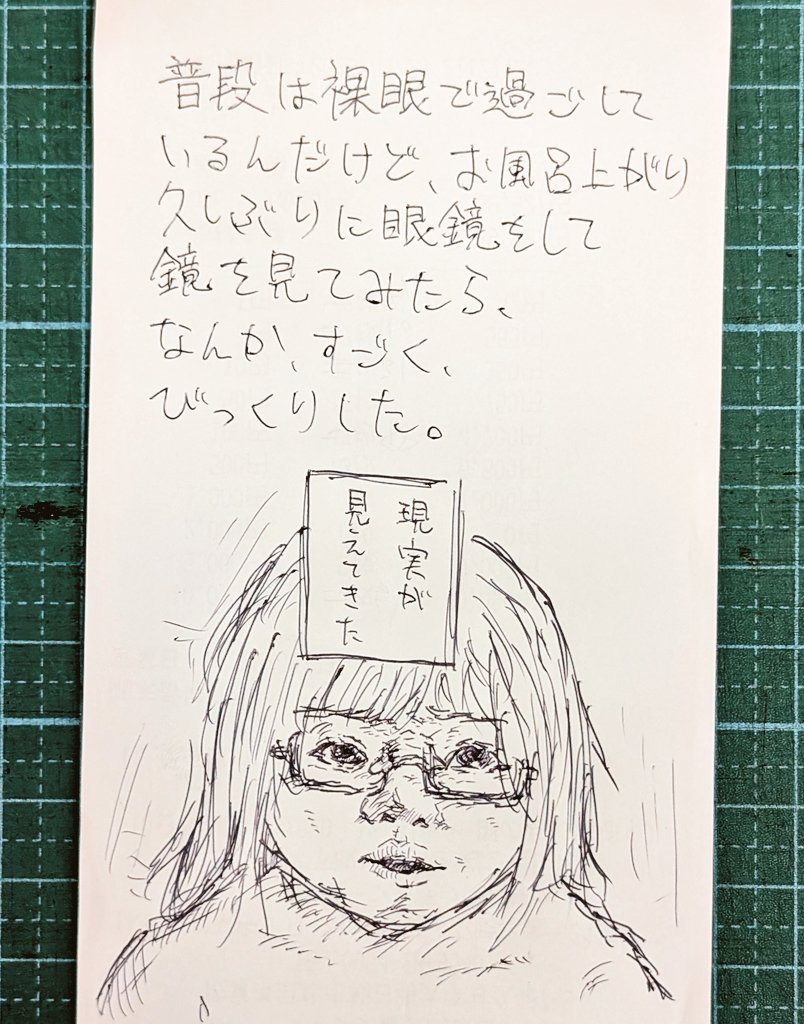 普段は裸眼で過ごして
いるんだけど、お風呂上がり
久しぶりに眼鏡をして
鏡を見てみたら、
なんか、すごく、
びっくりした。
現実が
見えてきた